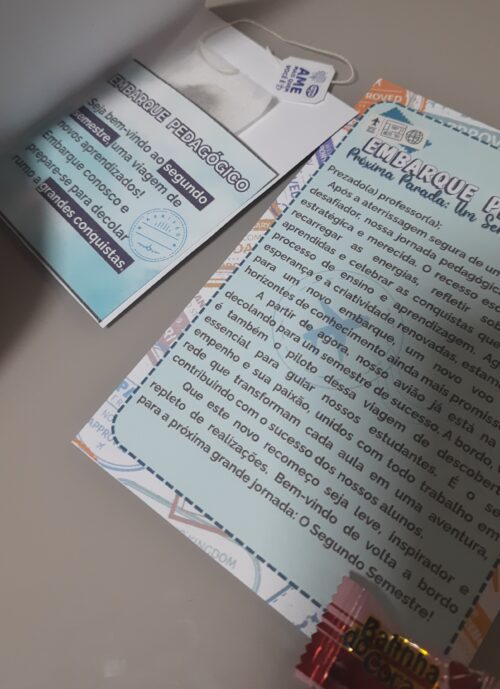 EMBARQUE PEDAGÓGICO
Seja bem-vindo ao segundo
semestre, uma viagem de
novos aprendizados!
Embarque conosco e
prepare-se para decolar
rumo a grandes conquistas.
AME
MAIS QUEM
VOCÊ É
ROVED
EMBARQUE P
Próxima Parada: Um Se
Prezado(a) professor(a):
Após a aterrissagem segura de um
desafiador, nossa jornada pedagógica
estratégica e merecida. O recesso esc
recarregar as energias, refletir so
aprendidas e celebrar as conquistas que
processo de ensino e aprendizagem. Ag
esperança e a criatividade renovadas, estam
para um novo embarque, um novo voo
horizontes de conhecimento ainda mais promiss
A partir de agora, nosso avião já está na
decolando para um semestre de sucesso. A bordo,
é também piloto dessa viagem de descober
essencial para guiar nossos estudantes. É o se
empenho e sua paixão, unidos com todo trabalho em
rede que transformam cada aula em uma aventura,
contribuindo com o sucesso dos nossos alunos.
Que este novo recomeço seja leve, inspirador e
repleto de realizações. Bem-vindo de volta a bordo
para a próxima grande jornada: O Segundo Semestre!
KINGDOM
Balinha
do Cora